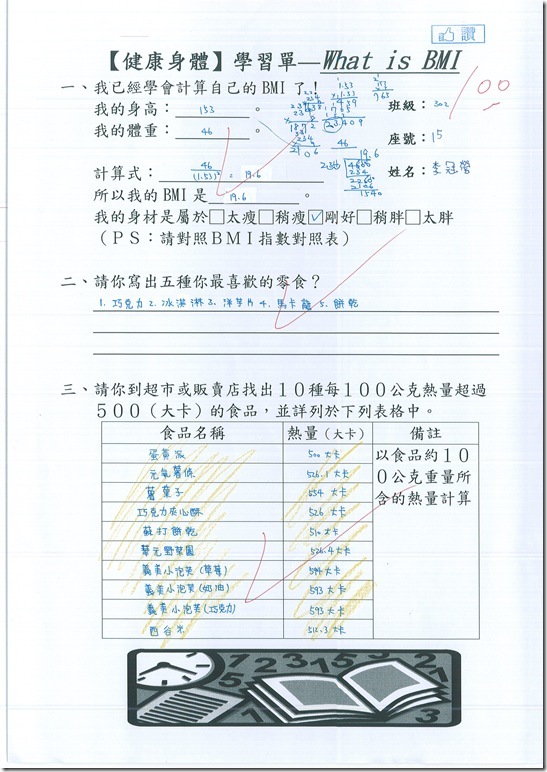 讚
【健康身體】學習單—What is BMI
100
一、我已經學會計算自己的BMI了!
我的身高:153。
班級:302
我的體重:46。
座號:15
計算式:46/(1.53)² = 19.6
姓名:李冠瑩
所以我的BMI是19.6。
我的身材是屬於□太瘦□稍瘦☑剛好□稍胖□太胖
(PS:請對照BMI指數對照表)
二、請你寫出五種你最喜歡的零食?
1. 巧克力 2. 冰淇淋 3. 洋芋片 4. 馬卡龍 5. 餅乾
三、請你到超市或販賣店找出10種每100公克熱量超過
500(大卡)的食品,並詳列於下列表格中。
食品名稱 熱量(大卡) 備註
蛋黃派 500大卡 以食品約10
元氣薯條 526.1大卡 0公克重量所
薯童子 534大卡 含的熱量計算
巧克力夾心酥 526大卡
蘇打餅乾 510大卡
華元野菜園 526.4大卡
義美小泡芙(草莓) 594大卡
義美小泡芙(奶油) 593大卡
義美小泡芙(巧克力) 593大卡
西谷米 512.3大卡